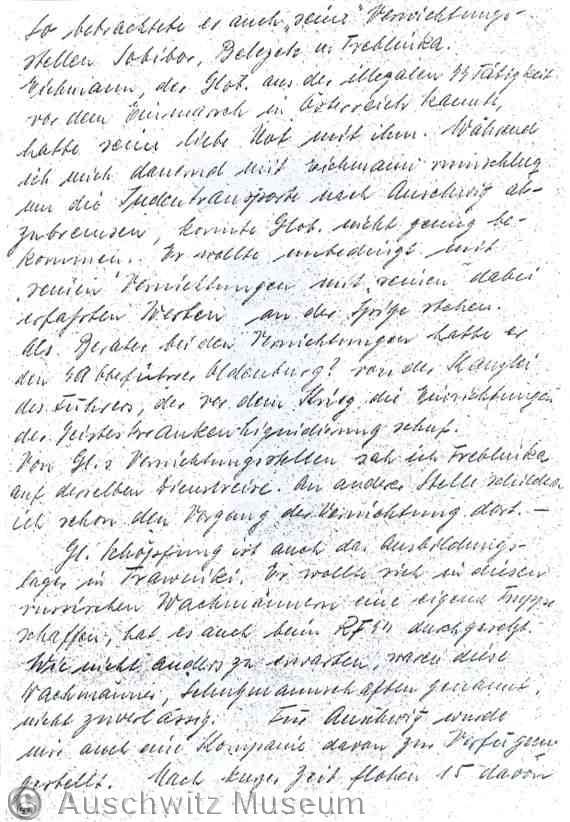 So betrachtete er auch „seine" Vernichtungs-
stellen Sobibor, Belzek u. Treblinka.
Eichmann, der Glob. aus der illegalen SS Tätigkeit
vor dem Einmarsch in Österreich kannte,
hatte seine liebe Not mit ihm. Während
ich mich dauernd mit Eichmann rumschlug
um die Judentransporte nach Auschwitz ab-
zubremsen, konnte Glob. nicht genug be-
kommen. Er wollte unbedingt mit
„seinen" Vernichtungen mit „seinen" dabei
erfaßten Werten an der Spitze stehen.
Als Berater bei den Vernichtungen hatte er
den Oldenburg? von der Kanzlei
des Führers, der vor dem Krieg die Einrichtungen
der Geisteskrankenliquidierung schuf.
Von Gl.s Vernichtungsstellen sah ich Treblinka
auf derselben Dienstreise. An anderer Stelle schilderte
ich schon den Vorgang der Vernichtung dort. —
Gl. Schöpfung ist auch das Ausbildungs-
lager in Trawniki. Er wollte sich in diesen
russischen Wachmännern eine eigene Truppe
schaffen, hat es auch beim RFSS durchgesetzt.
Wie nicht anders zu erwarten, waren diese
Wachmänner, Schutzmannschaften genannt,
nicht zuverlässig. Für Auschwitz wurde
mir auch eine Kompanie davon zur Verfügung
gestellt. Nach kurzer Zeit flohen 15 davon
© Auschwitz Museum